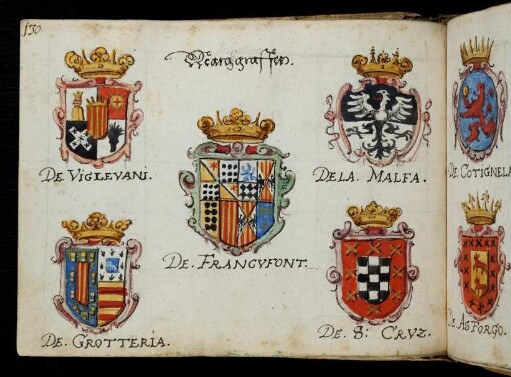 130.
Marggraffen.
De Viglevani.
De Francufont.
De la Malfa.
De Cotignela
De Grotteria.
De S: Cruz.
De Astorgo.